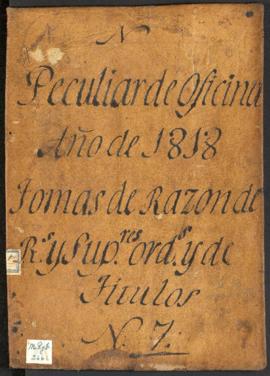 N
Peculiar de Oficina
Año de 1818
Tomas de Razon de
R.s y Sup.res ord.s y de
Titulos
N. 7.